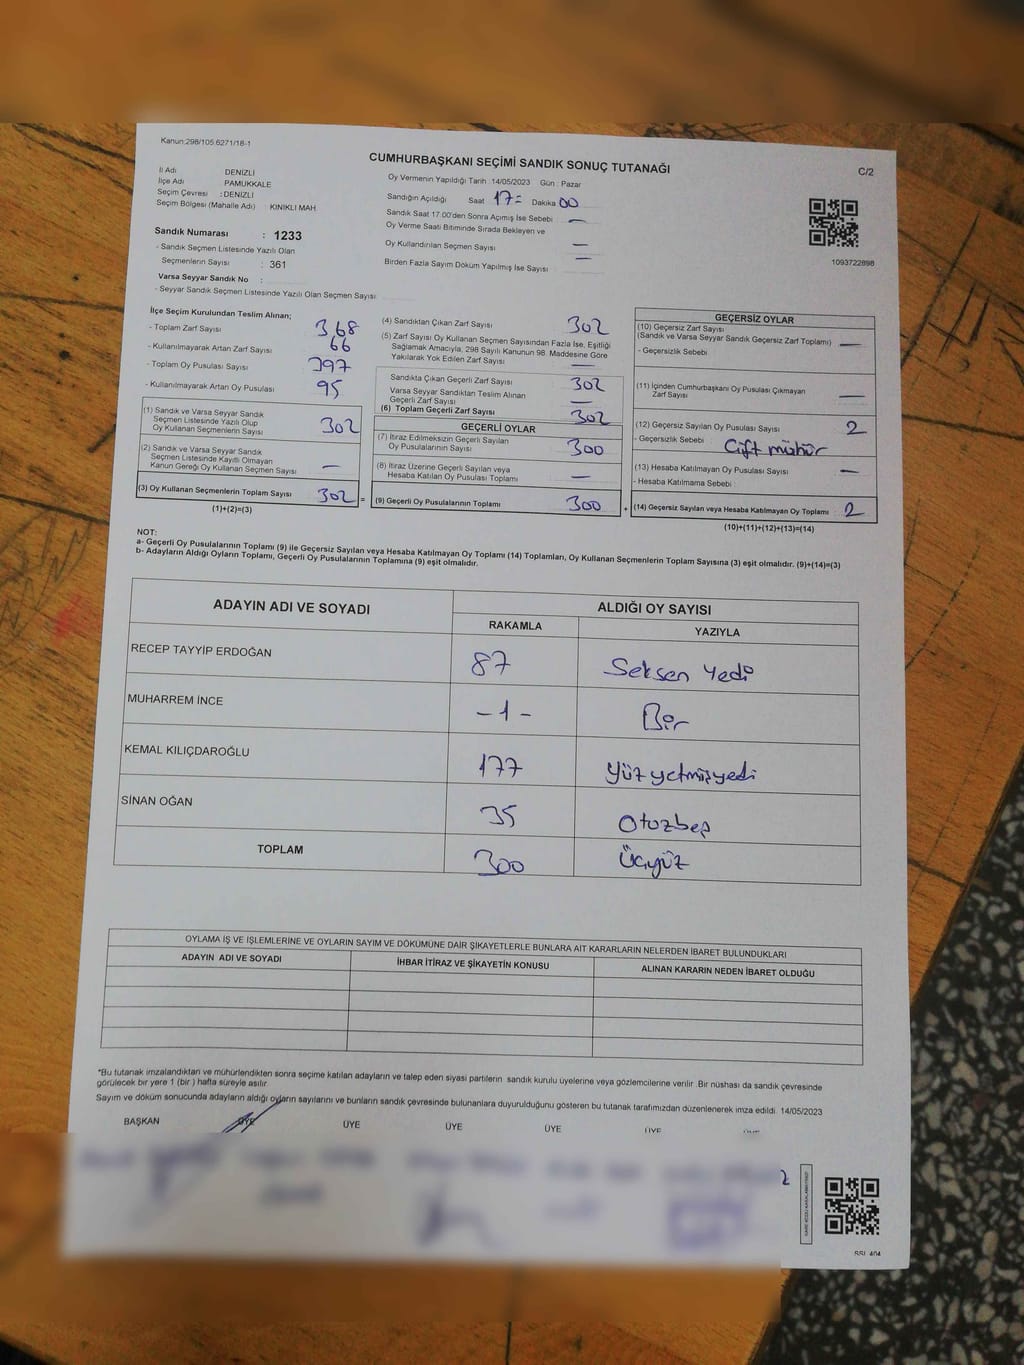 Kanun:298/105.6271/18-1
CUMHURBAŞKANI SEÇİMİ SANDIK SONUÇ TUTANAĞI
C/2
İl Adı DENİZLİ
İlçe Adı PAMUKKALE
Seçim Çevresi : DENİZLİ
Seçim Bölgesi (Mahalle Adı) : KINIKLI MAH.
Sandık Numarası : 1233
- Sandık Seçmen Listesinde Yazılı Olan
Seçmenlerin Sayısı : 361
Varsa Seyyar Sandık No :
- Seyyar Sandık Seçmen Listesinde Yazılı Olan Seçmen Sayısı
Oy Vermenin Yapıldığı Tarih : 14/05/2023 Gün : Pazar
Sandığın Açıldığı Saat 17: Dakika 00
Sandık Saat 17.00'den Sonra Açımış İse Sebebi —
Oy Verme Saati Bitiminde Sırada Bekleyen ve
Oy Kullandırılan Seçmen Sayısı —
Birden Fazla Sayım Döküm Yapılmış İse Sayısı —
1093722898
İlçe Seçim Kurulundan Teslim Alınan;
- Toplam Zarf Sayısı 368
- Kullanılmayarak Artan Zarf Sayısı 66
- Toplam Oy Pusulası Sayısı 397
- Kullanılmayarak Artan Oy Pusulası 95
(1) Sandık ve Varsa Seyyar Sandık
Seçmen Listesinde Yazılı Olup
Oy Kullanan Seçmenlerin Sayısı 302
(2) Sandık ve Varsa Seyyar Sandık
Seçmen Listesinde Kayıtlı Olmayan
Kanun Gereği Oy Kullanan Seçmen Sayısı —
(3) Oy Kullanan Seçmenlerin Toplam Sayısı 302 =
(1)+(2)=(3)
(4) Sandıktan Çıkan Zarf Sayısı 302
(5) Zarf Sayısı Oy Kullanan Seçmen Sayısından Fazla İse, Eşitliği
Sağlamak Amacıyla, 298 Sayılı Kanunun 98. Maddesine Göre
Yakılarak Yok Edilen Zarf Sayısı —
Sandıkta Çıkan Geçerli Zarf Sayısı 302
Varsa Seyyar Sandıktan Teslim Alınan
Geçerli Zarf Sayısı —
(6) Toplam Geçerli Zarf Sayısı 302
GEÇERLİ OYLAR
(7) İtiraz Edilmeksizin Geçerli Sayılan
Oy Pusulalarının Sayısı 300
(8) İtiraz Üzerine Geçerli Sayılan veya
Hesaba Katılan Oy Pusulası Toplamı —
(9) Geçerli Oy Pusulalarının Toplamı 300 +
GEÇERSİZ OYLAR
(10) Geçersiz Zarf Sayısı
(Sandık ve Varsa Seyyar Sandık Geçersiz Zarf Toplamı) —
- Geçersizlik Sebebi
(11) İçinden Cumhurbaşkanı Oy Pusulası Çıkmayan
Zarf Sayısı —
(12) Geçersiz Sayılan Oy Pusulası Sayısı 2
- Geçersizlik Sebebi Çift mühür
(13) Hesaba Katılmayan Oy Pusulası Sayısı —
- Hesaba Katılmama Sebebi :
(14) Geçersiz Sayılan veya Hesaba Katılmayan Oy Toplamı 2
(10)+(11)+(12)+(13)=(14)
NOT:
a- Geçerli Oy Pusulalarının Toplamı (9) ile Geçersiz Sayılan veya Hesaba Katılmayan Oy Toplamı (14) Toplamları, Oy Kullanan Seçmenlerin Toplam Sayısına (3) eşit olmalıdır. (9)+(14)=(3)
b- Adayların Aldığı Oyların Toplamı, Geçerli Oy Pusulalarının Toplamına (9) eşit olmalıdır.
ADAYIN ADI VE SOYADI
ALDIĞI OY SAYISI
RAKAMLA YAZIYLA
RECEP TAYYİP ERDOĞAN 87 Seksen Yedi
MUHARREM İNCE -1- Bir
KEMAL KILIÇDAROĞLU 177 Yüz yetmişyedi
SİNAN OĞAN 35 Otuzbeş
TOPLAM 300 Üçyüz
OYLAMA İŞ VE İŞLEMLERİNE VE OYLARIN SAYIM VE DÖKÜMÜNE DAİR ŞİKAYETLERLE BUNLARA AİT KARARLARIN NELERDEN İBARET BULUNDUKLARI
ADAYIN ADI VE SOYADI İHBAR İTİRAZ VE ŞİKAYETİN KONUSU ALINAN KARARIN NEDEN İBARET OLDUĞU
*Bu tutanak imzalandıktan ve mühürlendikten sonra seçime katılan adayların ve talep eden siyasi partilerin sandık kurulu üyelerine veya gözlemcilerine verilir. Bir nüshası da sandık çevresinde
görülecek bir yere 1 (bir) hafta süreyle asılır.
Sayım ve döküm sonucunda adayların aldığı oyların sayılarını ve bunların sandık çevresinde bulunanlara duyurulduğunu gösteren bu tutanak tarafımızdan düzenlenerek imza edildi. 14/05/2023
BAŞKAN ÜYE ÜYE ÜYE ÜYE ÜYE